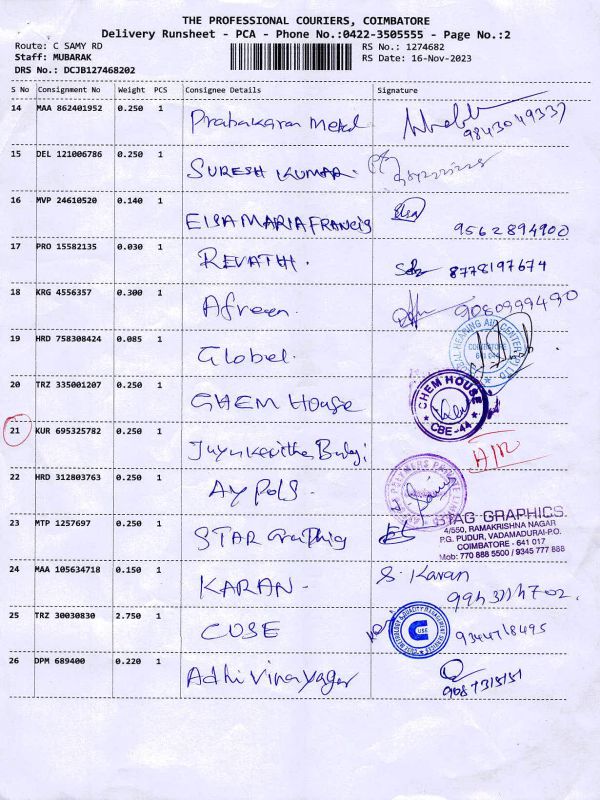 THE PROFESSIONAL COURIERS, COIMBATORE
Delivery Runsheet - PCA - Phone No.:0422-3505555 - Page No.:2
Route: C SAMY RD RS No.: 1274682
Staff: MUBARAK RS Date: 16-Nov-2023
DRS No.: DCJB127468202
S No Consignment No Weight PCS Consignee Details Signature
14 MAA 862401952 0.250 1 Prabakaran Metal
9843049337
15 DEL 121006786 0.250 1 SURESH KUMAR.
16 MVP 24610520 0.140 1 ELSA MARIA FRANCIS
9562894900
17 PRO 15582135 0.030 1 REVATHI. 8778197674
18 KRG 4556357 0.300 1 Afreen. 9080999490
19 HRD 758308424 0.085 1 Global.
HEARING AID CENTER
COIMBATORE
20 TRZ 335001207 0.250 1 CHEM House
CHEM HOUSE
CBE-44
21 KUR 695325782 0.250 1
22 HRD 312803763 0.250 1 AY POLS.
23 MTP 1257697 0.250 1 STAR Graphics
STAG GRAPHICS.
4/550, RAMAKRISHNA NAGAR
P.G. PUDUR, VADAMADURAI-P.O.
COIMBATORE - 641 017
Mob: 770 888 5500 / 9345 777 888
24 MAA 105634718 0.150 1 KARAN - S. Karan
25 TRZ 30030830 2.750 1 CUSE
CUSE
9344718495
26 DPM 689400 0.220 1 Adhi Vinayagar